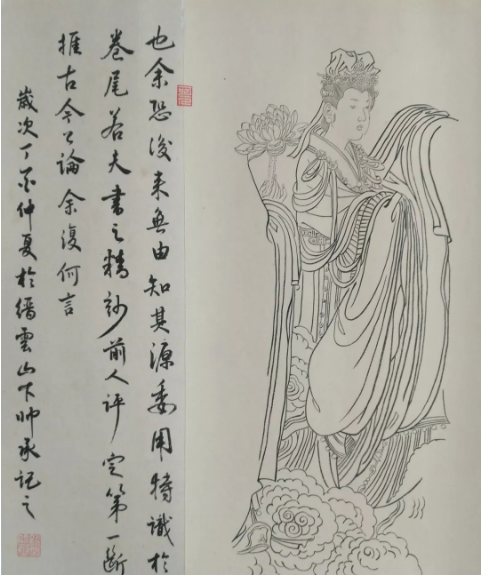 也余恐後来無由知其源委用特識於
卷尾若夫書之精妙前人評定第一斷
推古今公論余復何言
歲次丁亥仲夏於縉雲山下帅承記之